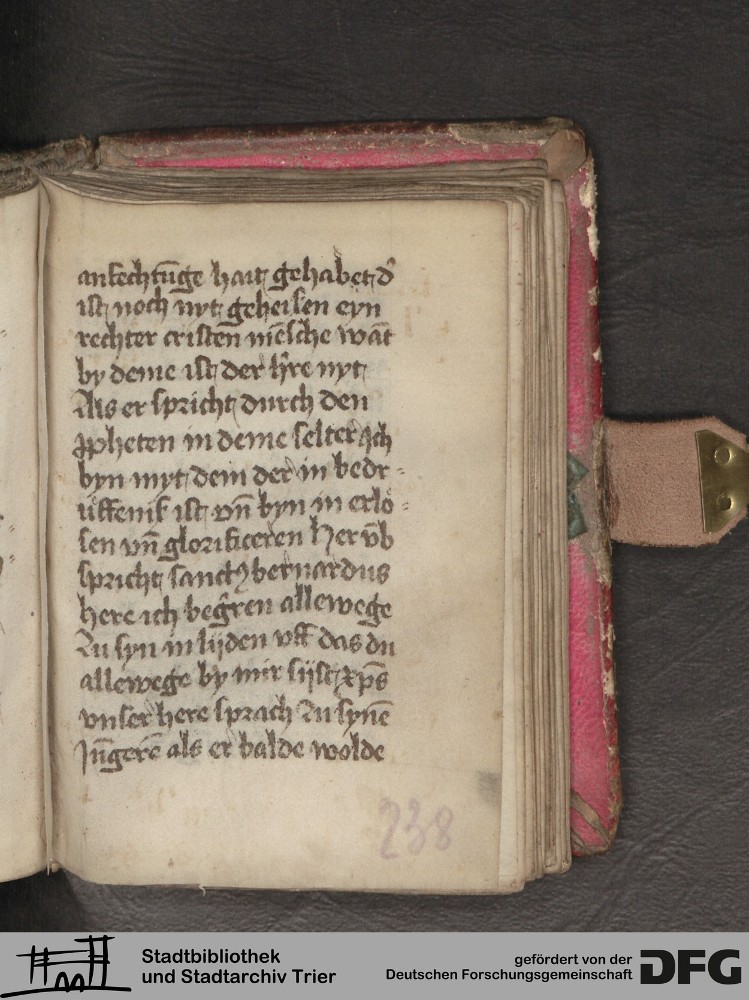 anfechtūge hait gehabet d'
ist noch nyt geheisen eyn
rechter cristen mēsche wāt
by deme ist der h're nyt
Als er spricht durch den
ꝓpheten in deme selter Ich
byn myt dem der in bedr-
uͦffenis ist vn̄ byn in erlo-
sen vn̄ glorificeren Her vb̄
spricht sanctꝰ bernardus
here ich beg'ren allewege
zu syn in lijden vff das du
allewege by mir sijst xp̄s
vnser here sprach zu synē
Jūgerē als er balde wolde
238
Stadtbibliothek
und Stadtarchiv Trier
gefördert von der
Deutschen Forschungsgemeinschaft
DFG